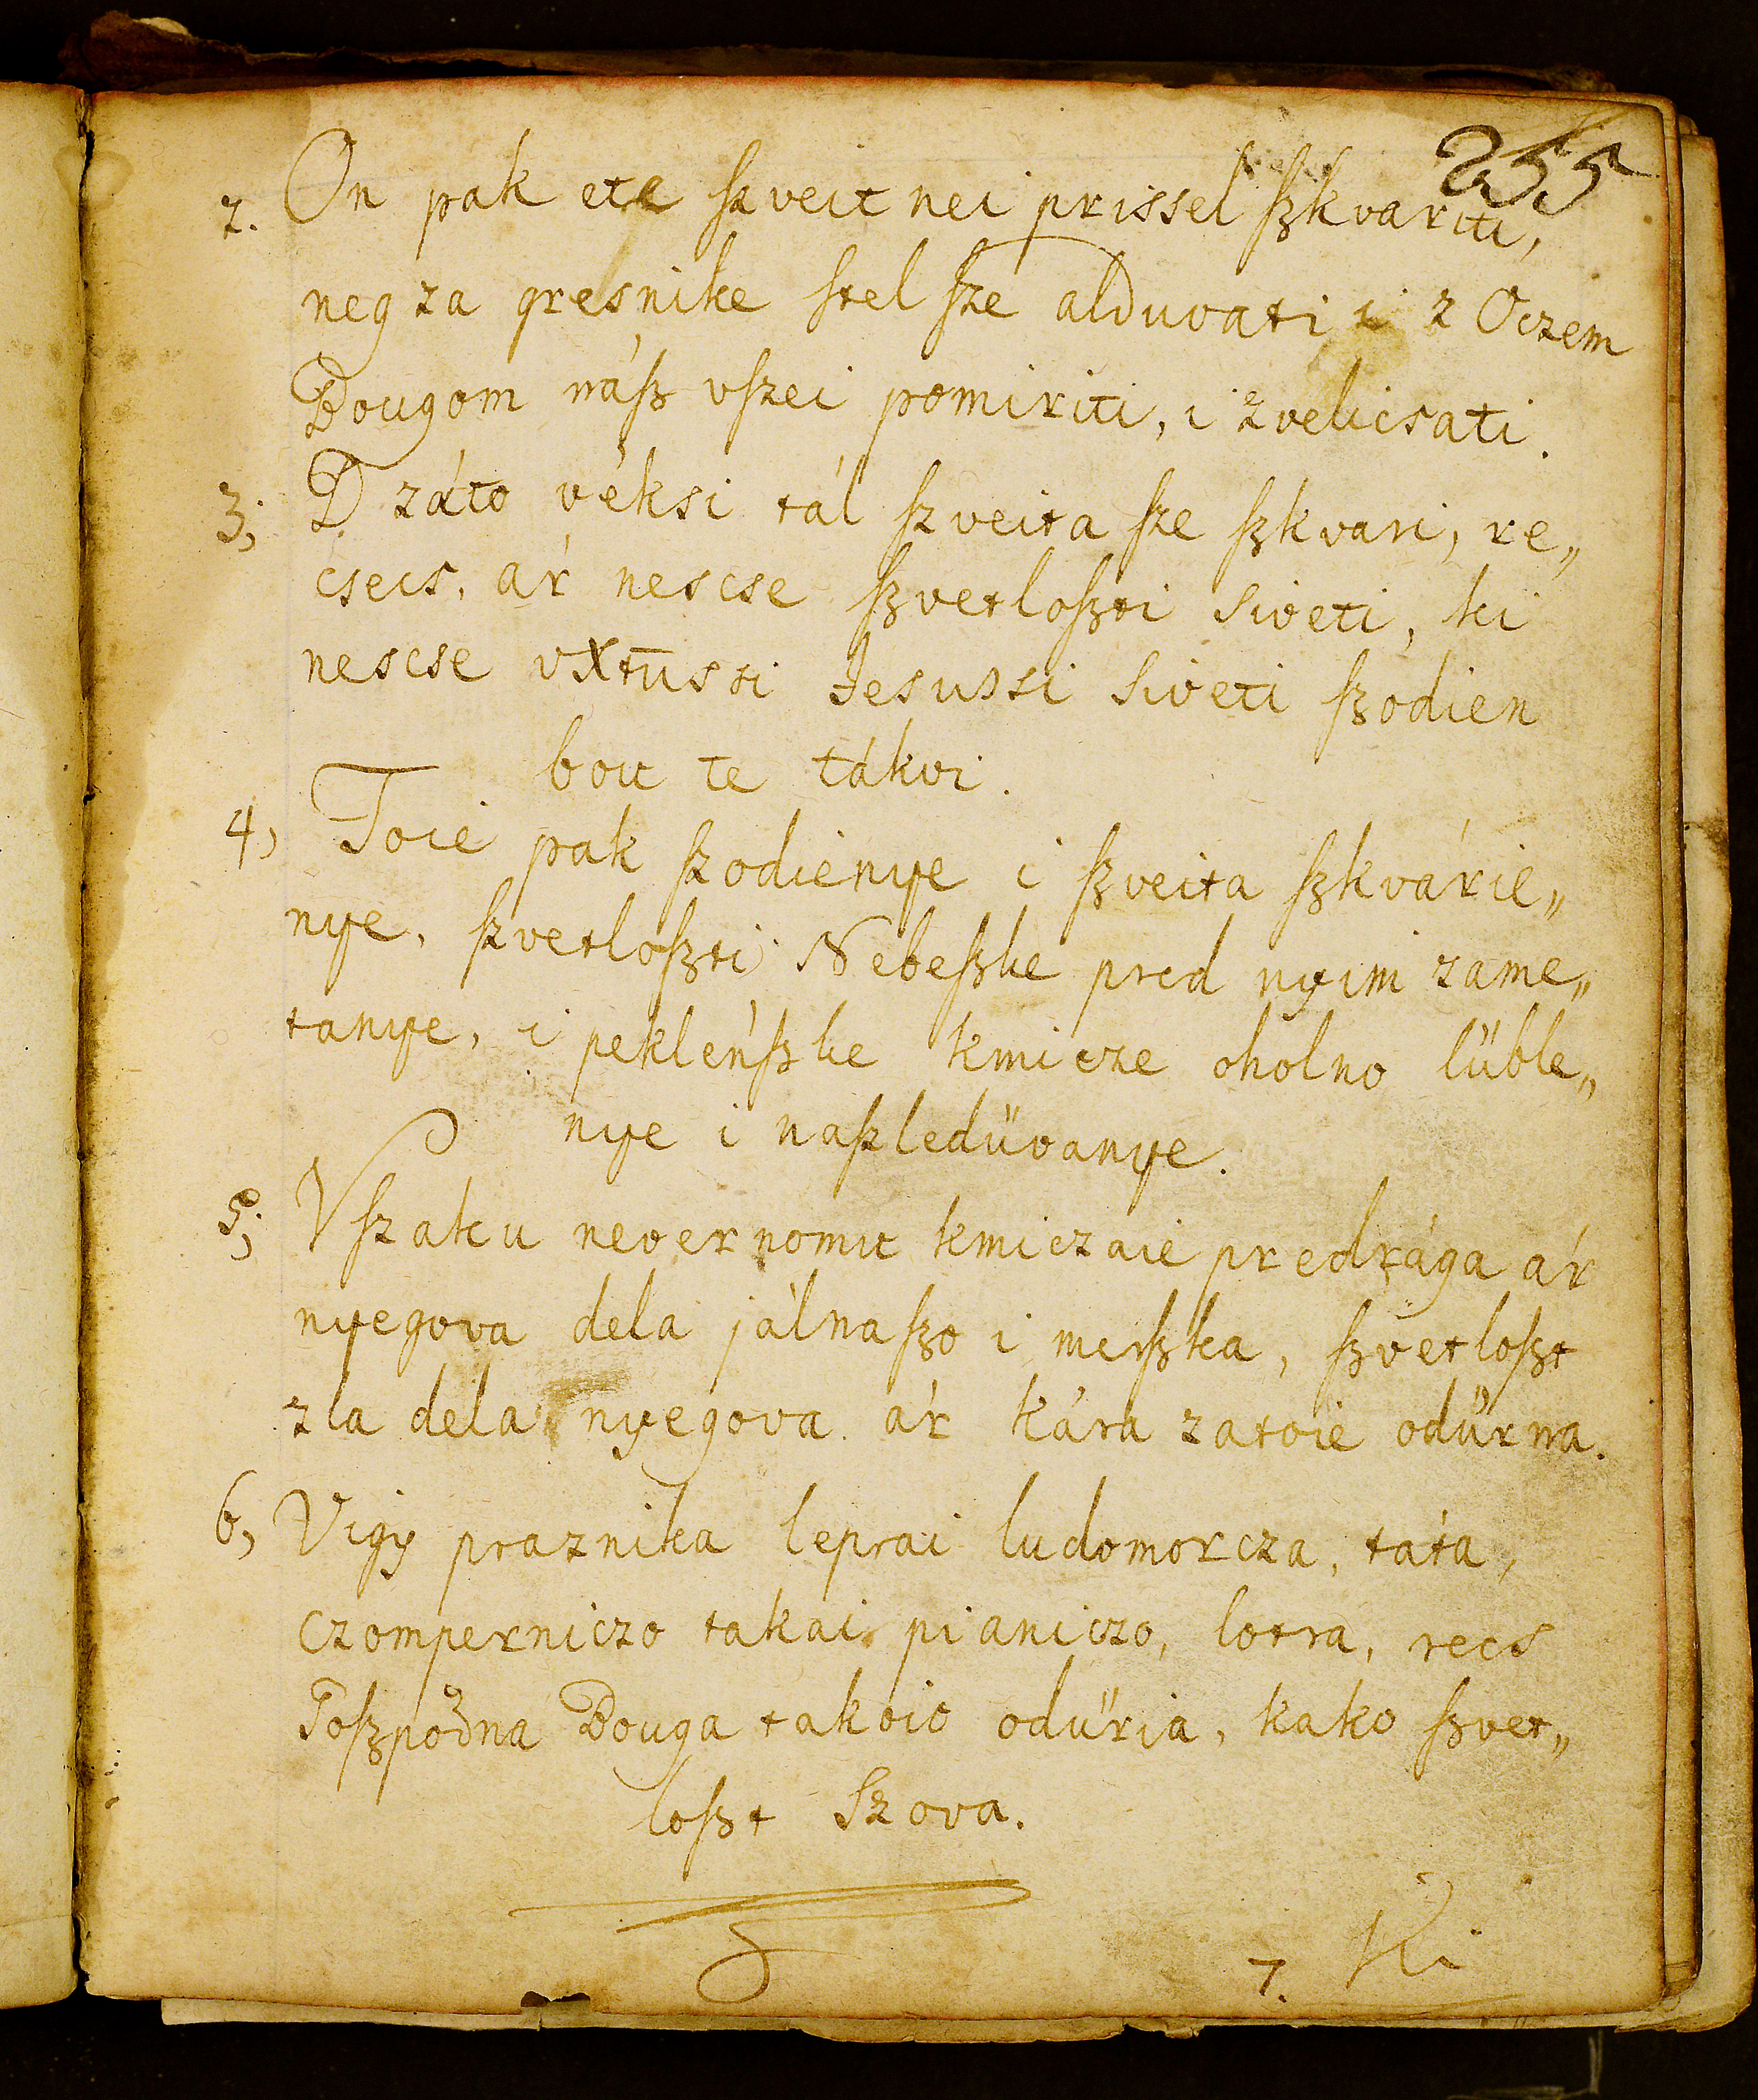 255
2. On pak ete szveit nei prissel szkvariti,
neg za gresnike stel sze alduvati i z Oczem
Bougom nász vszei pomiriti, i zvelicsati.
3; D záto véksi tál szveita sze szkvari, re„
csecs, ár nescse szvetloszti siveti, ki
nescse vXtussi Jesussi siveti szodien
bou te tákvi.
4, Toie pak szodienye i szveita szkvárie„
nye, szvetloszti Nebeszke pred nyim zame„
tanye, i peklénszke kmicze oholno lüble„
nye i naszledüvanye.
5; Vszaku nevernomu kmiczaie predrága ár
nyegova dela jálnaszo i merszka, szvetloszt
zla dela nyegova ár kára zatoie odürna.
6, Vigy praznika leprai ludomorcza, táta,
czomperniczo takai pianiczo, lotra, recs
Goszpodna Bouga takoio odüria, kako szvet„
loszt Szova.
7. Ki